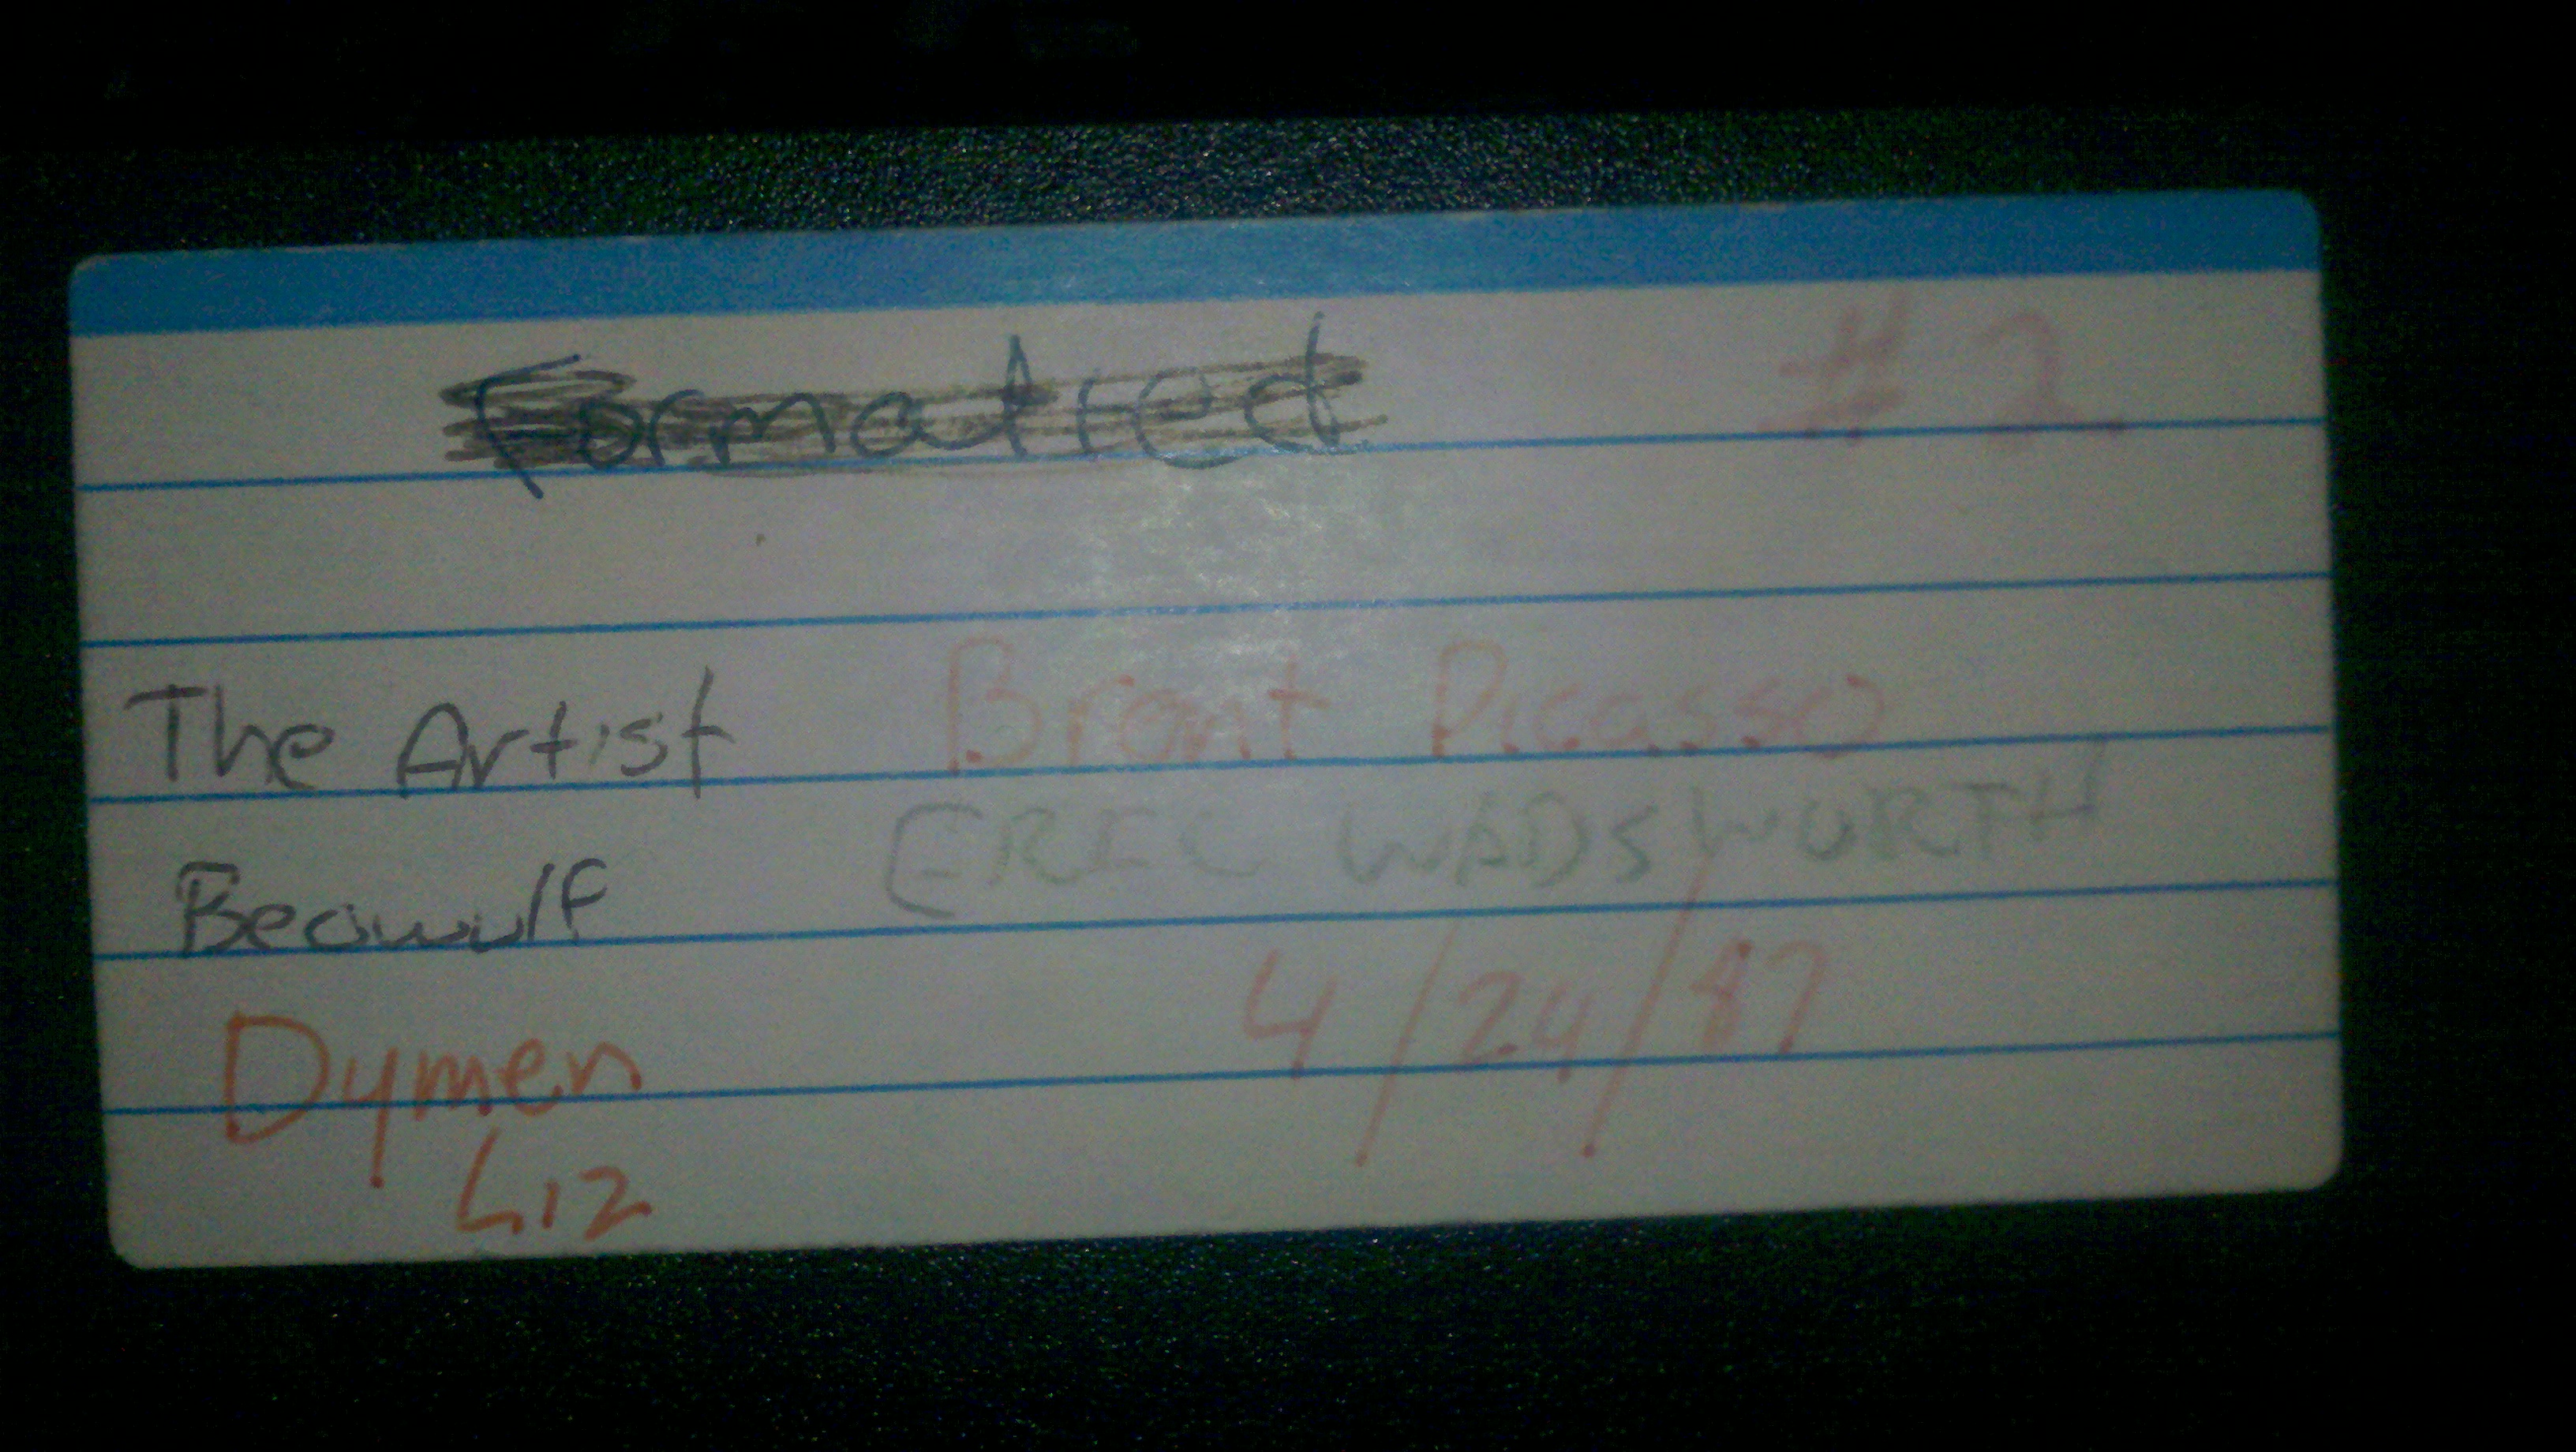 Formatted #2
The Artist Bront Picasso
Beowulf ERIC WADSWORTH
Dymen 4/24/87
Liz